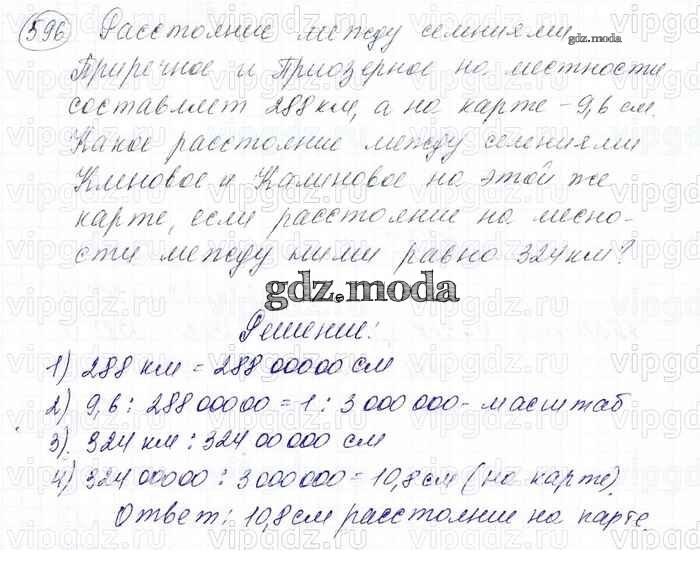 596 Расстояние между селениями
gdz.moda
Приречное и Приозерное на местности
составляет 288 км, а на карте - 9,6 см.
Какое расстояние между селениями
Кленовое и Калиновое на этой же
карте, если расстояние на месно-
сти между ними равно 324 км?
gdz.moda
Решение:
1) 288 км = 288 00000 см
2) 9,6 : 288 00000 = 1 : 3 000 000 - масштаб
3) 324 км : 324 00 000 см
4) 324 00000 : 3 000000 = 10,8 см (на карте).
Ответ: 10,8 см расстояние на карте.